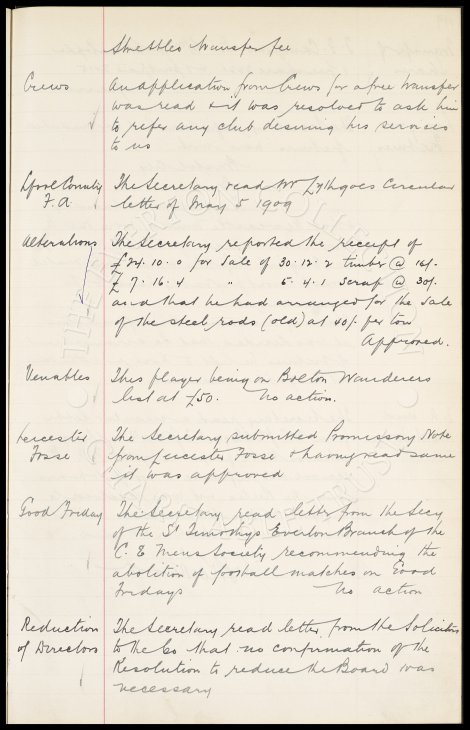 Strettles transfer fee
Crews An application from Crews for a free transfer
was read & it was resolved to ask him
to refer any club desiring his services
to us
Lpool County The Secretary read Mr Lythgoes Circular
F.A. letter of May 5 1909
Alterations The Secretary reported the receipt of
£24.10.0 for Sale of 30.12.2 timber @ 16/-
£7.16.4 " 5.4.1 Scrap @ 30/-
and that he had arranged for the Sale
of the steel rods (old) at 40/- per ton
Approved.
Venables This player being on Bolton Wanderers
list at £50. No action.
Leicester The Secretary submitted Promissory Note
Fosse from Leicester Fosse & having read same
it was approved
Good Friday The Secretary read letter from the Secy
of the St Timothys Everton Branch of the
C. E Mens Society recommending the
abolition of football matches on Good
Fridays No action
Reduction The Secretary read letter from the Solicitors
of Directors to the Co that no confirmation of the
Resolution to reduce the Board was
necessary